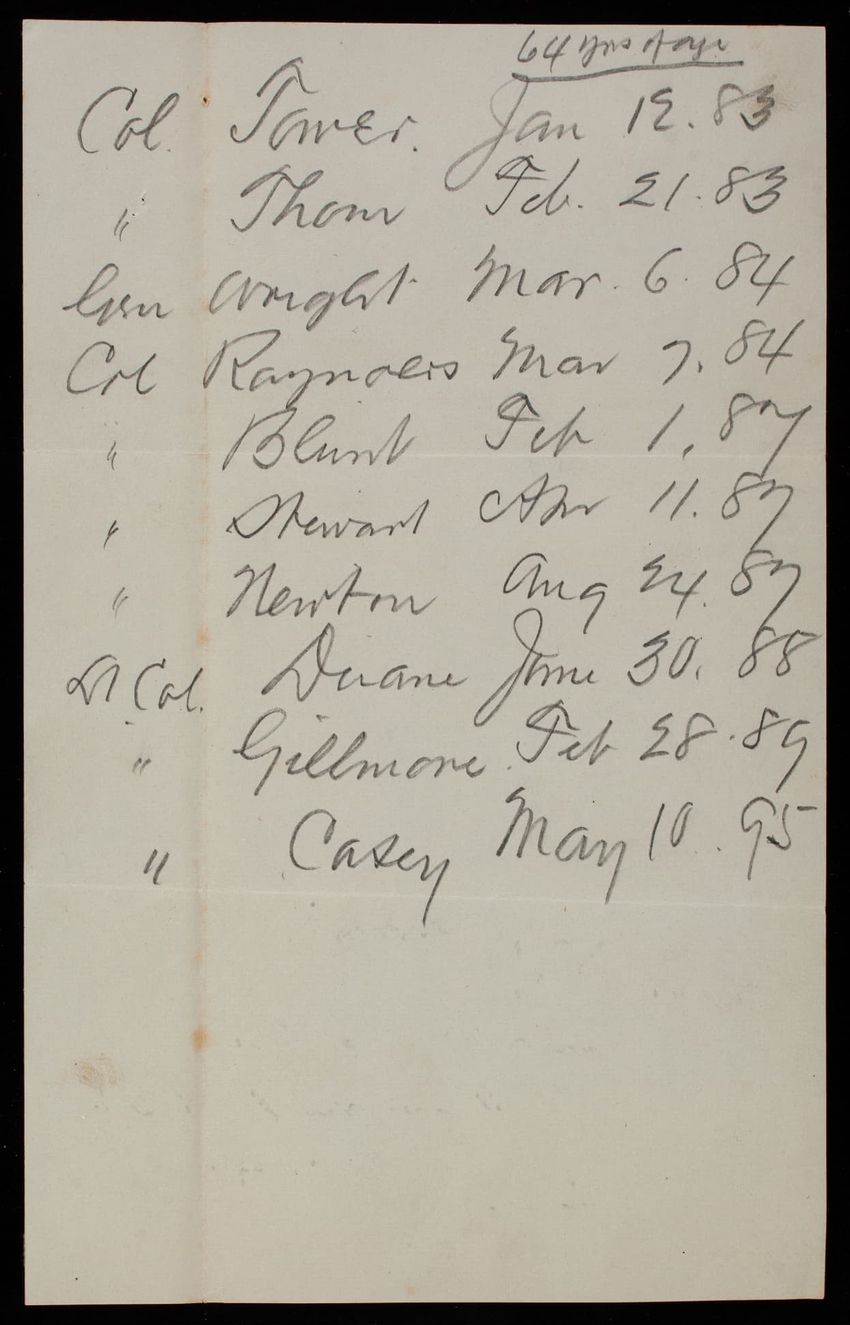 64 yrs of age
Col. Tower. Jan 12. 83
" Thom Feb. 21. 83
Gen Wright Mar. 6. 84
Col Raynolds Mar 7. 84
" Blunt Feb 1, 87
" Stewart Apr 11. 87
" Newton Aug 24. 87
Lt Col. Duane June 30. 88
" Gillmore Feb 28. 89
" Casey May 10. 95